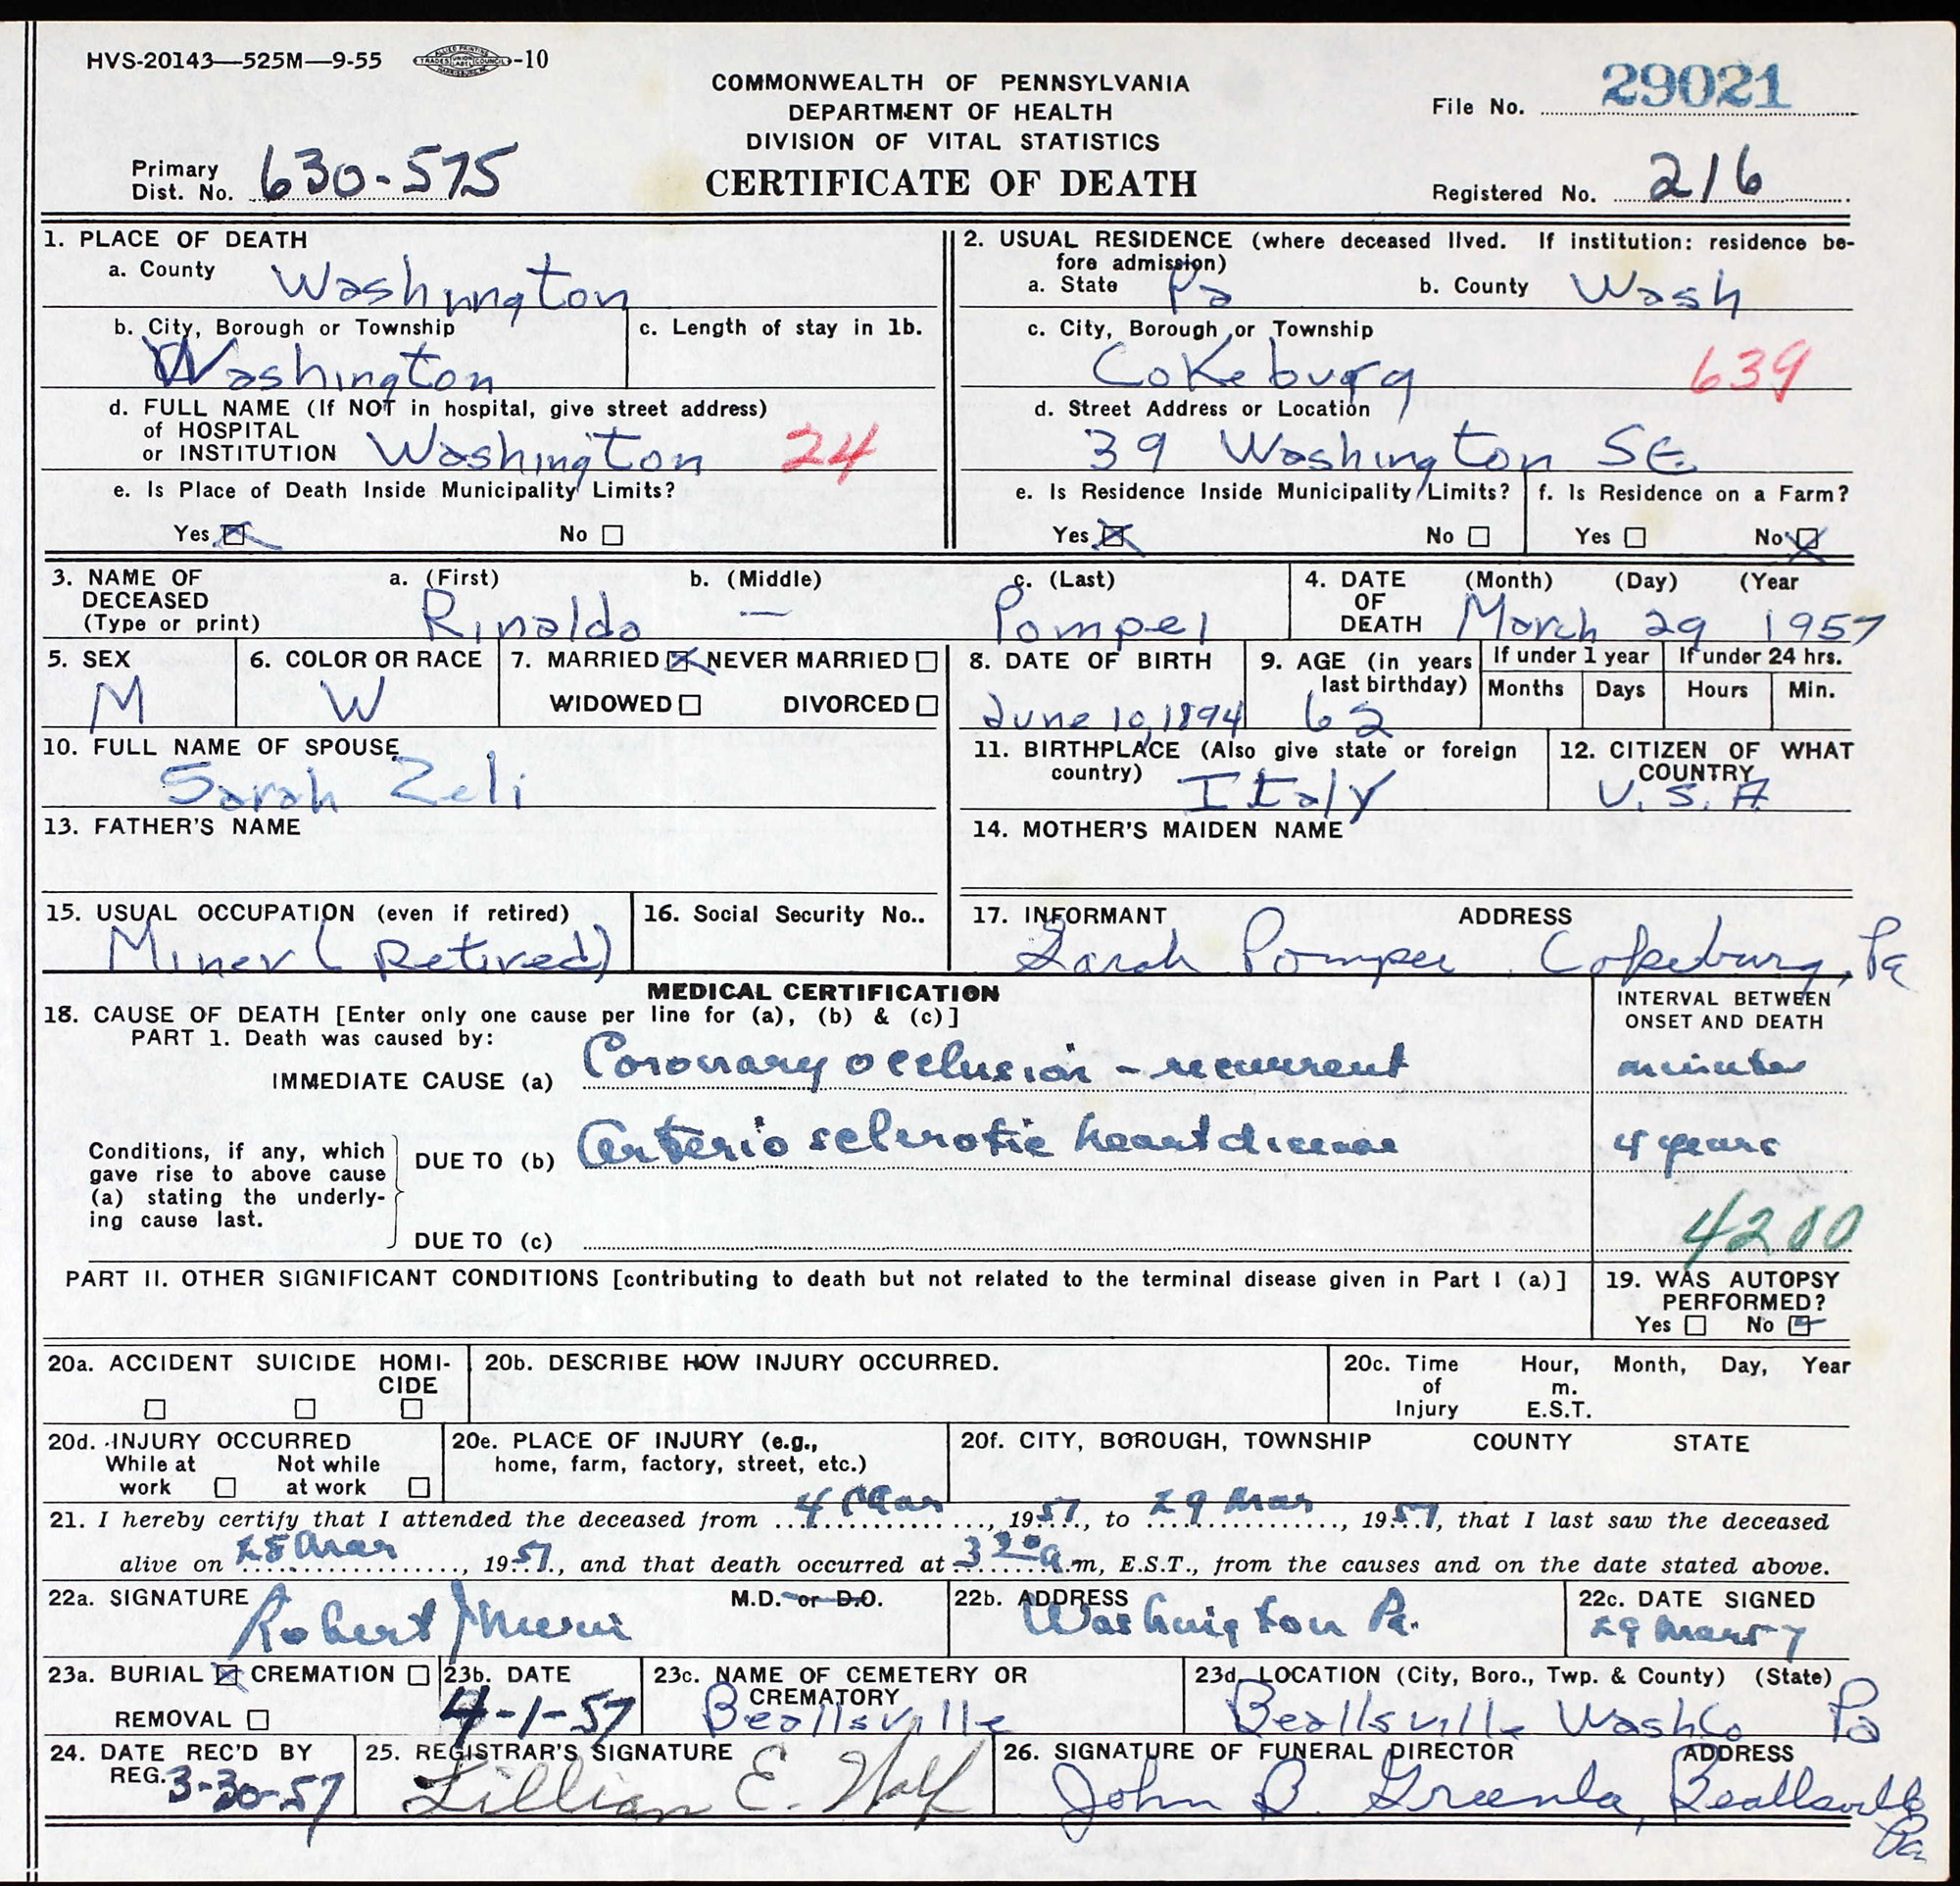 HVS-20143—525M—9-55 -10
COMMONWEALTH OF PENNSYLVANIA
DEPARTMENT OF HEALTH
DIVISION OF VITAL STATISTICS
CERTIFICATE OF DEATH
File No. 29021
Primary
Dist. No. 630-575
Registered No. 216
1. PLACE OF DEATH
a. County Washington
b. City, Borough or Township
Washington
c. Length of stay in 1b.
d. FULL NAME (If NOT in hospital, give street address)
of HOSPITAL
or INSTITUTION Washington 24
e. Is Place of Death Inside Municipality Limits?
Yes No
2. USUAL RESIDENCE (where deceased lived. If institution: residence be-
fore admission)
a. State Pa b. County Wash
c. City, Borough or Township
Cokeburg 639
d. Street Address or Location
39 Washington St.
e. Is Residence Inside Municipality Limits? f. Is Residence on a Farm?
Yes No Yes No
3. NAME OF DECEASED (Type or print)
a. (First) b. (Middle) c. (Last)
Rinaldo — Pompei
4. DATE OF DEATH (Month) (Day) (Year
March 29 1957
5. SEX
M
6. COLOR OR RACE
W
7. MARRIED NEVER MARRIED
WIDOWED DIVORCED
8. DATE OF BIRTH
June 10, 1894
9. AGE (in years
last birthday)
62
If under 1 year If under 24 hrs.
Months Days Hours Min.
10. FULL NAME OF SPOUSE
Sarah Zeli
11. BIRTHPLACE (Also give state or foreign
country) Italy
12. CITIZEN OF WHAT
COUNTRY
U.S.A
13. FATHER'S NAME
14. MOTHER'S MAIDEN NAME
15. USUAL OCCUPATION (even if retired)
Miner (Retired)
16. Social Security No..
17. INFORMANT ADDRESS
Sarah Pompei Cokeburg, Pa
MEDICAL CERTIFICATION
18. CAUSE OF DEATH [Enter only one cause per line for (a), (b) & (c)]
PART 1. Death was caused by:
INTERVAL BETWEEN
ONSET AND DEATH
IMMEDIATE CAUSE (a) Coronary occlusion - recurrent minutes
Conditions, if any, which
gave rise to above cause
(a) stating the underly-
ing cause last.
DUE TO (b) Arterio sclerotic heart disease 4 years
DUE TO (c) 4200
PART II. OTHER SIGNIFICANT CONDITIONS [contributing to death but not related to the terminal disease given in Part I (a)]
19. WAS AUTOPSY
PERFORMED?
Yes No
20a. ACCIDENT SUICIDE HOMI-
CIDE
20b. DESCRIBE HOW INJURY OCCURRED.
20c. Time Hour, Month, Day, Year
of m.
Injury E.S.T.
20d. INJURY OCCURRED
While at Not while
work at work
20e. PLACE OF INJURY (e.g.,
home, farm, factory, street, etc.)
20f. CITY, BOROUGH, TOWNSHIP COUNTY STATE
21. I hereby certify that I attended the deceased from 4 Mar, 1957, to 29 Mar, 1957, that I last saw the deceased
alive on 28 Mar, 1957, and that death occurred at 3 20 a.m, E.S.T., from the causes and on the date stated above.
22a. SIGNATURE M.D. or D.O.
Robert
22b. ADDRESS
Washington Pa.
22c. DATE SIGNED
29 Mar 57
23a. BURIAL CREMATION
REMOVAL
23b. DATE
4-1-57
23c. NAME OF CEMETERY OR
CREMATORY
Beallsville
23d. LOCATION (City, Boro., Twp. & County) (State)
Beallsville Wash Co Pa
24. DATE REC'D BY
REG. 3-30-57
25. REGISTRAR'S SIGNATURE
Lillian E.
26. SIGNATURE OF FUNERAL DIRECTOR ADDRESS
John B. Greenlee, Beallsville
Pa.